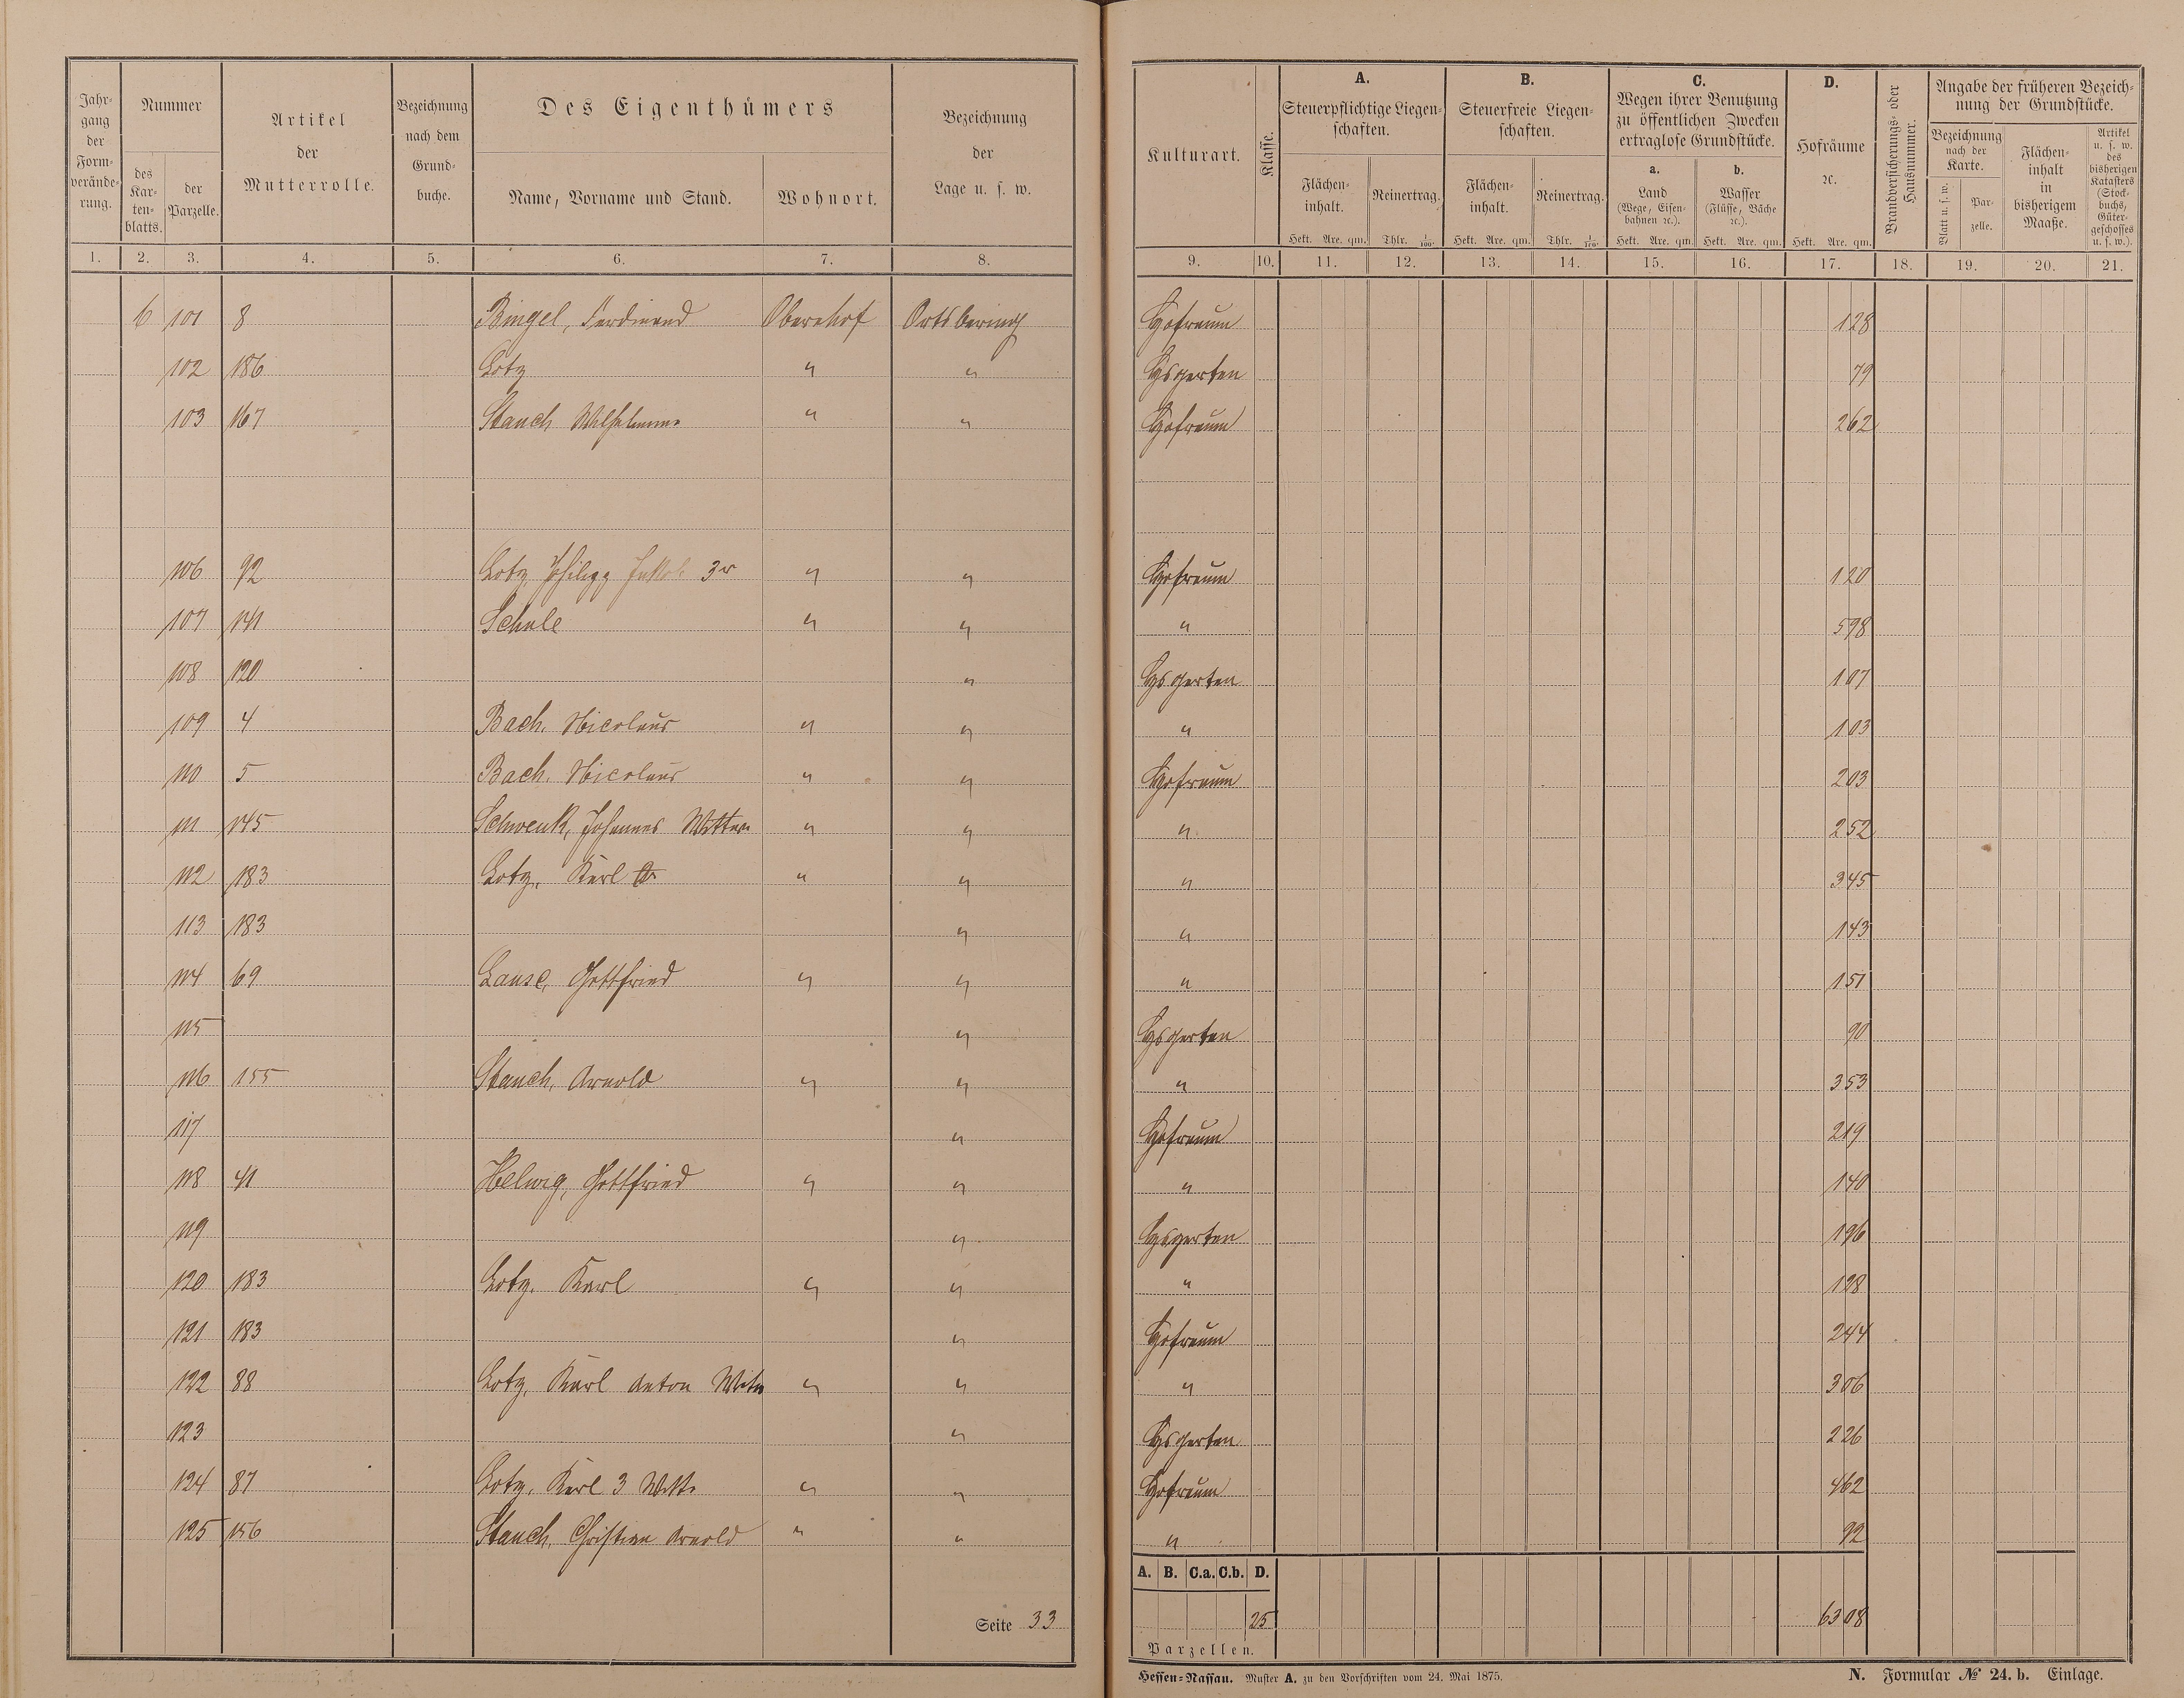 Jahrgang der Formverände-rung.
Nummer
des Kar-ten-blatts.
der Parzelle.
Artikel der Mutterrolle.
Bezeichnung nach dem Grund-buche.
Des Eigenthümers
Name, Vorname und Stand.
Wohnort.
Bezeichnung der Lage u. s. w.
Kulturart.
Klasse.
A. Steuerpflichtige Liegen-schaften.
Flächen-inhalt. Hekt. Are. qm.
Reinertrag. Thlr. 1/100.
B. Steuerfreie Liegen-schaften.
Flächen-inhalt. Hekt. Are. qm.
Reinertrag. Thlr. 1/100.
C. Wegen ihrer Benutzung zu öffentlichen Zwecken ertraglose Grundstücke.
a. Land (Wege, Eisen-bahnen ꝛc.). Hekt. Are. qm.
b. Wasser (Flüsse, Bäche ꝛc.). Hekt. Are. qm.
D. Hofräume ꝛc. Hekt. Are. qm.
Brandversicherungs- oder Hausnummer.
Angabe der früheren Bezeich-nung der Grundstücke.
Bezeichnung nach der Karte.
Blatt u. s. w.
Par-zelle.
Flächen-inhalt in bisherigem Maaße.
Artikel u. s. w. des bisherigen Katasters (Stock-buchs, Güter-geschosses u. s. w.).
1. 2. 3. 4. 5. 6. 7. 8. 9. 10. 11. 12. 13. 14. 15. 16. 17. 18. 19. 20. 21.
6 101 8 Bingel, Ferdinand Obernhof Ortsbering Hofraum 128
102 186 Lotz " " Hsgarten 79
103 167 Stauch Wilhelmine " " Hofraum 262
106 92 Lotz, Philipp Jakob 3r " " Hofraum 120
107 141 Schule " " " 598
108 120 " Hsgarten 107
109 4 Bach, Nicolaus " " " 103
110 5 Bach, Nicolaus " " Hofraum 203
111 145 Schwenk, Johannes Wittwe " " " 252
112 183 Lotz, Karl " " " 345
113 183 " " 143
114 69 Lause, Gottfried " " " 151
115 " Hsgarten 90
116 155 Stauch, Arnold " " " 353
117 " Hofraum 219
118 41 Helwig, Gottfried " " " 140
119 " Hsgarten 196
120 183 Lotz, Karl " " " 128
121 183 " Hofraum 244
122 88 Lotz, Karl Anton Witw " " " 306
123 " Hsgarten 226
124 87 Lotz, Karl 3 Wtt. " " Hofraum 462
125 156 Stauch, Christian Arnold " " " 92
A. B. C.a. C.b. D.
Seite 33
25 6308
Parzellen.
Hessen-Nassau. Muster A. zu den Vorschriften vom 24. Mai 1875.
N. Formular № 24. b. Einlage.